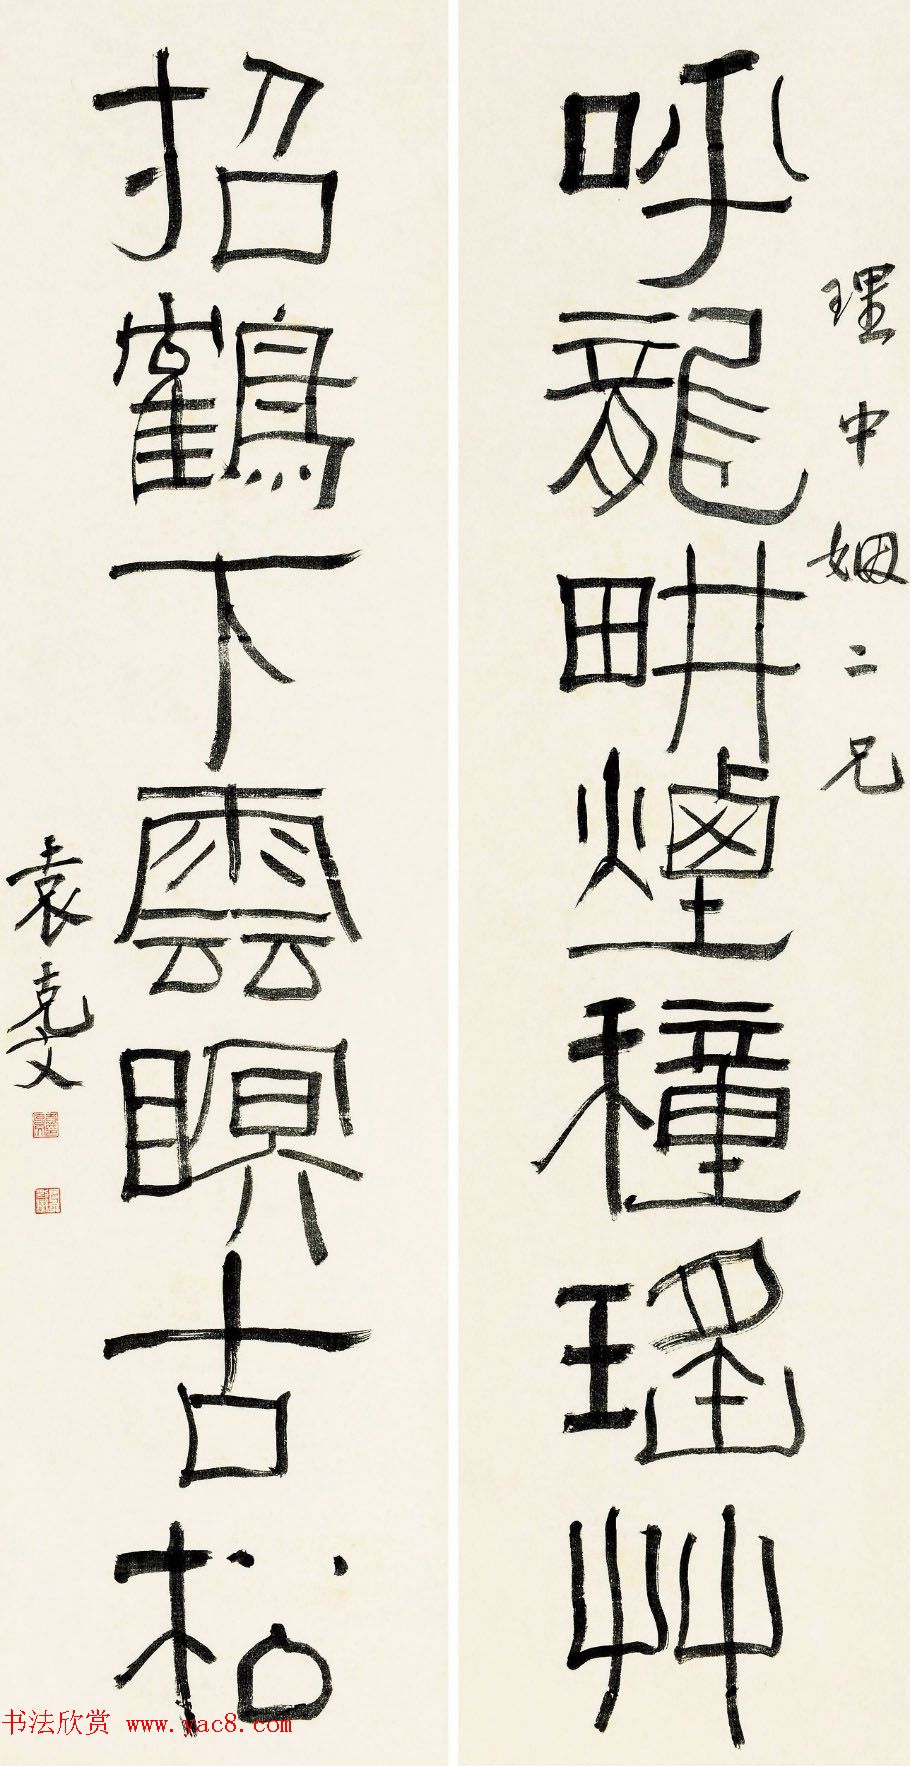 理中姻二兄
呼龍畊煙穜瑤艸
招鶴下雲瞑古松
袁克文
书法欣赏 www.yac8.com